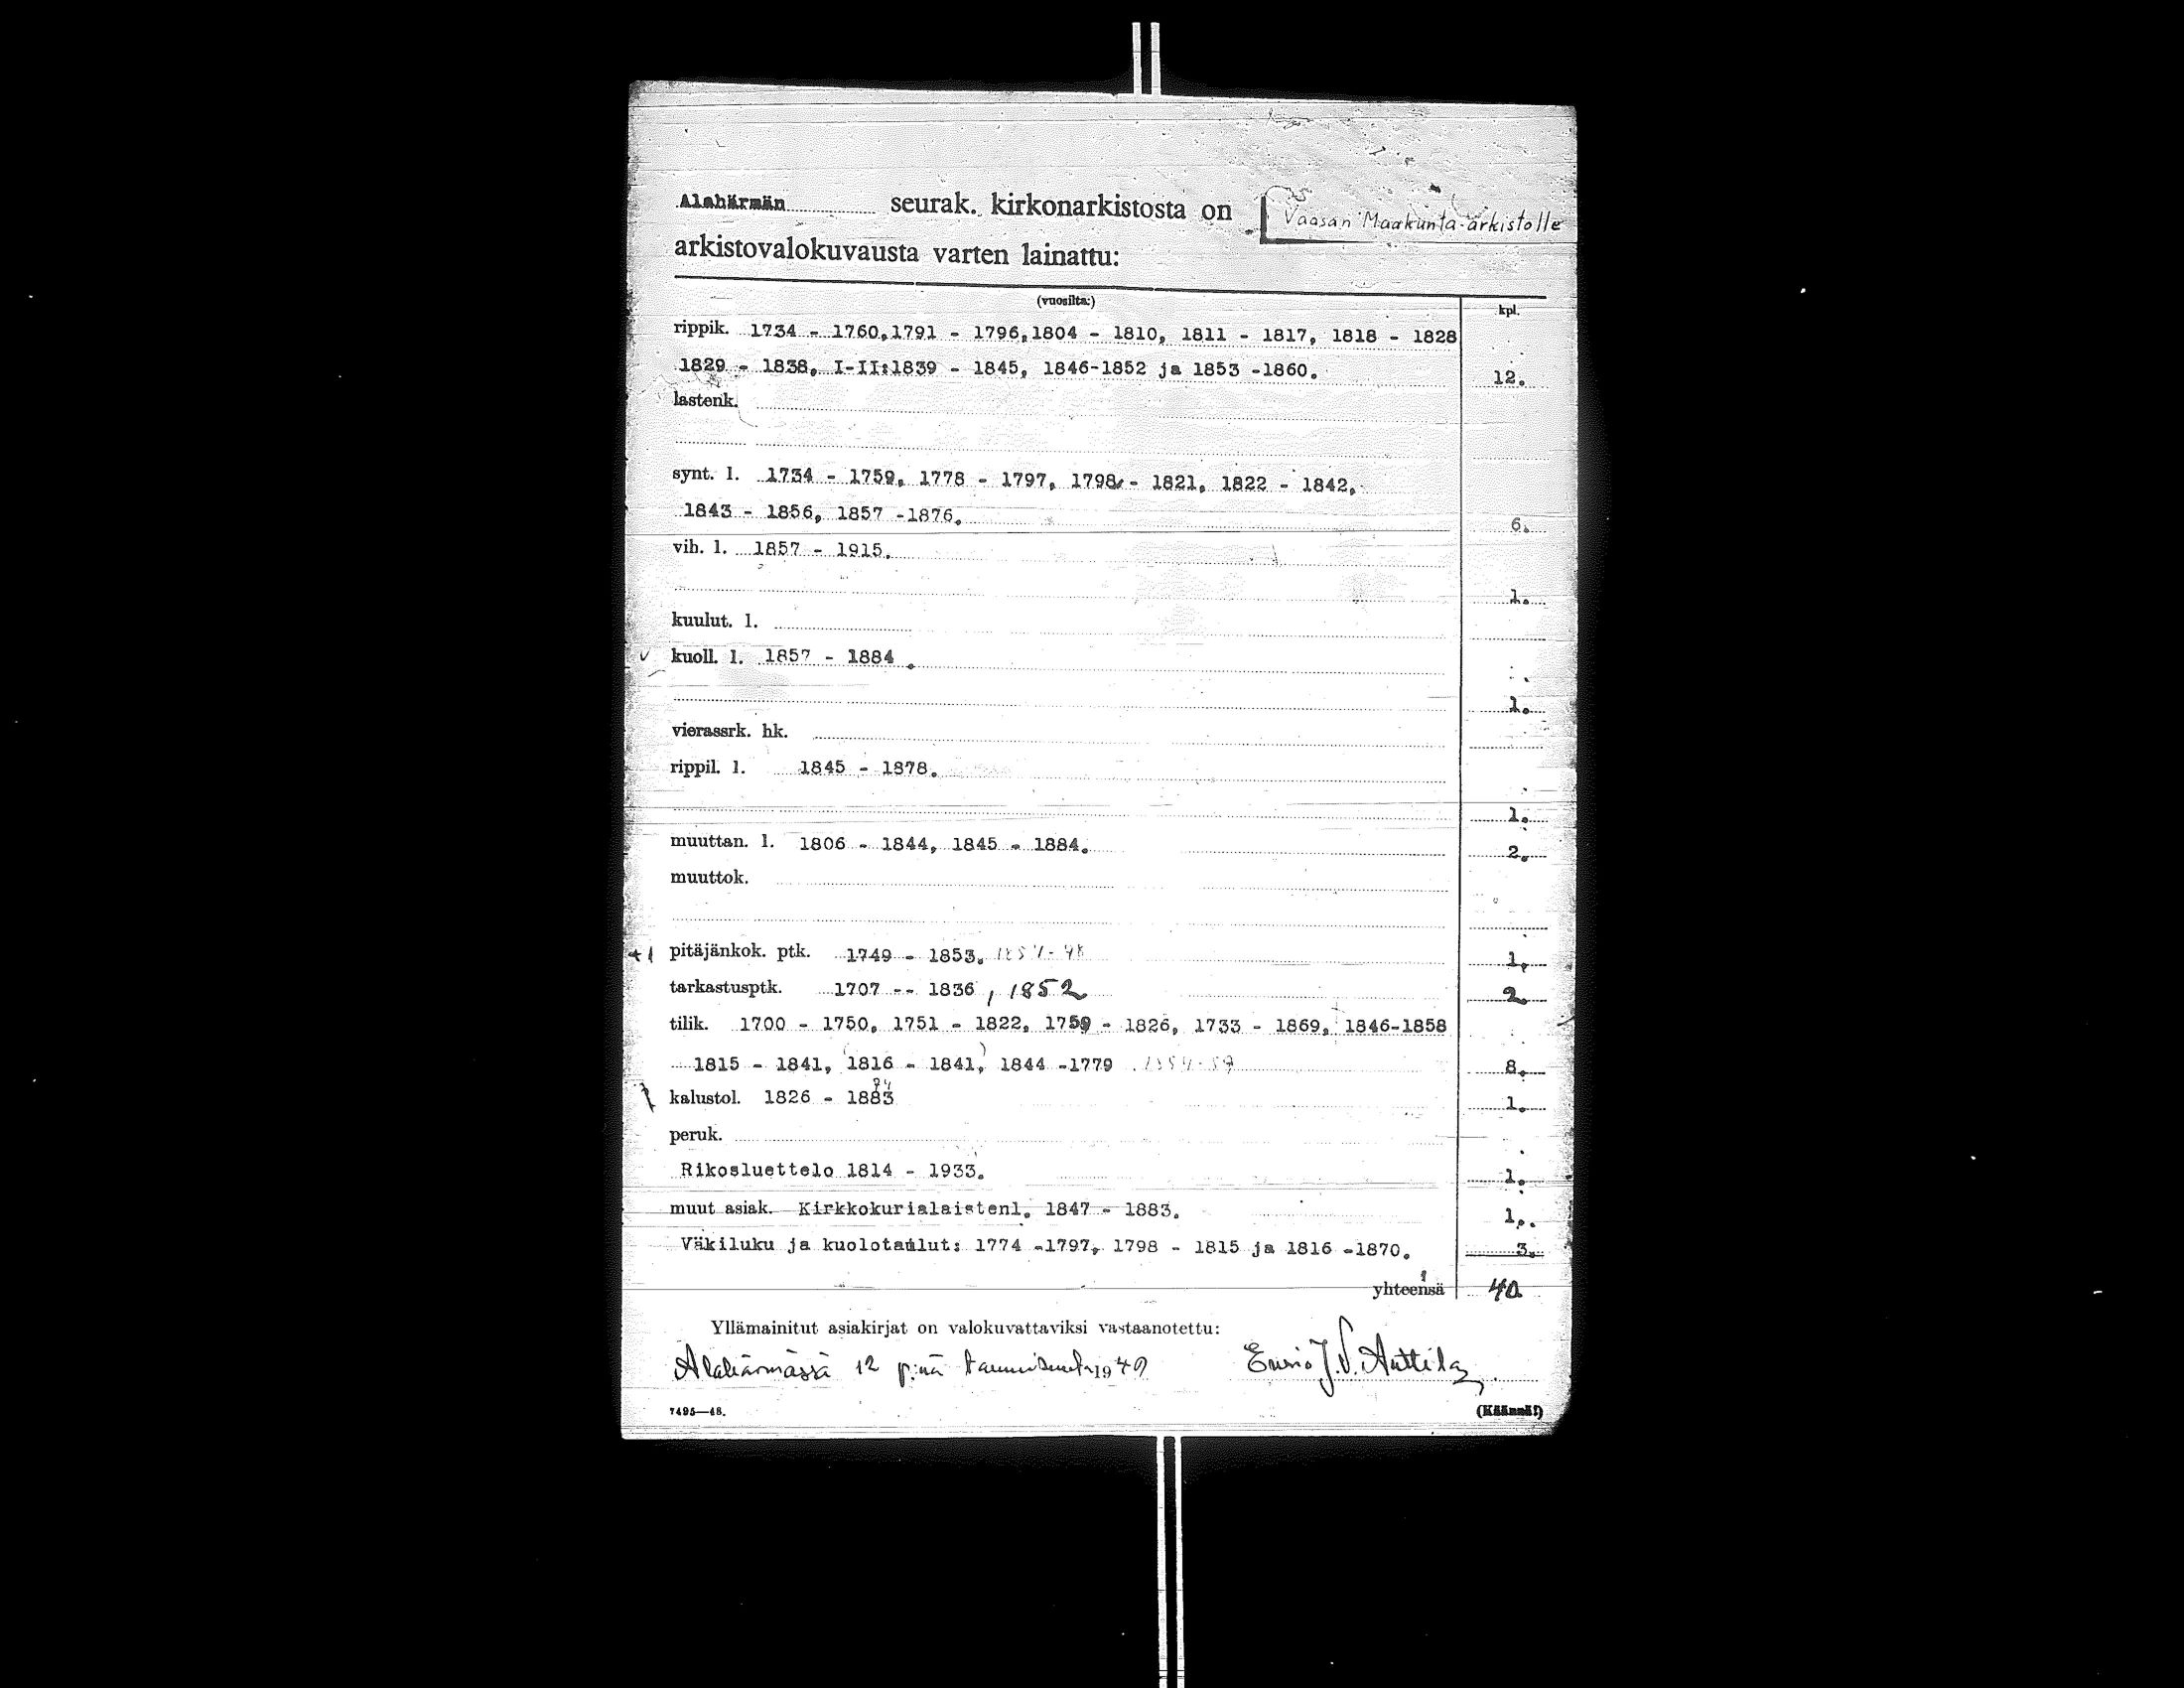 Alahärmän seurak. kirkonarkistosta on Vaasan Maakunta-arkistolle
arkistovalokuvausta varten lainattu:
(vuosilta:) kpl.
rippik. 1734 - 1760,1791 - 1796,1804 - 1810, 1811 - 1817, 1818 - 1828
1829 - 1838, I-II:1839 - 1845, 1846-1852 ja 1853 -1860. 12.
lastenk.
synt. l. 1734 - 1759, 1778 - 1797, 1798 - 1821, 1822 - 1842,
1843 - 1856, 1857 -1876. 6.
vih. l. 1857 - 1915.
1.
kuulut. l.
✓ kuoll. l. 1857 - 1884.
1.
vierassrk. hk.
rippil. l. 1845 - 1878.
1.
muuttan. l. 1806 - 1844, 1845 - 1884. 2.
muuttok.
+1 pitäjänkok. ptk. 1749 - 1853. 1.
tarkastusptk. 1707 -- 1836, 1852 2
tilik. 1700 - 1750, 1751 - 1822, 1759 - 1826, 1733 - 1869, 1846-1858
1815 - 1841, (1816 - 1841,) 1844 -1779 8.
kalustol. 1826 - 1883 1.
peruk.
Rikosluettelo 1814 - 1933. 1.
muut asiak. Kirkkokurialaistenl. 1847 - 1883. 1.
Väkiluku ja kuolotaulut: 1774 -1797, 1798 - 1815 ja 1816 -1870. 3.
yhteensä 40
Yllämainitut asiakirjat on valokuvattaviksi vastaanotettu:
Alahärmässä 12 p:nä tammikuuta 1949 Ensio J.V. Anttila
7495—48. (Käännä!)